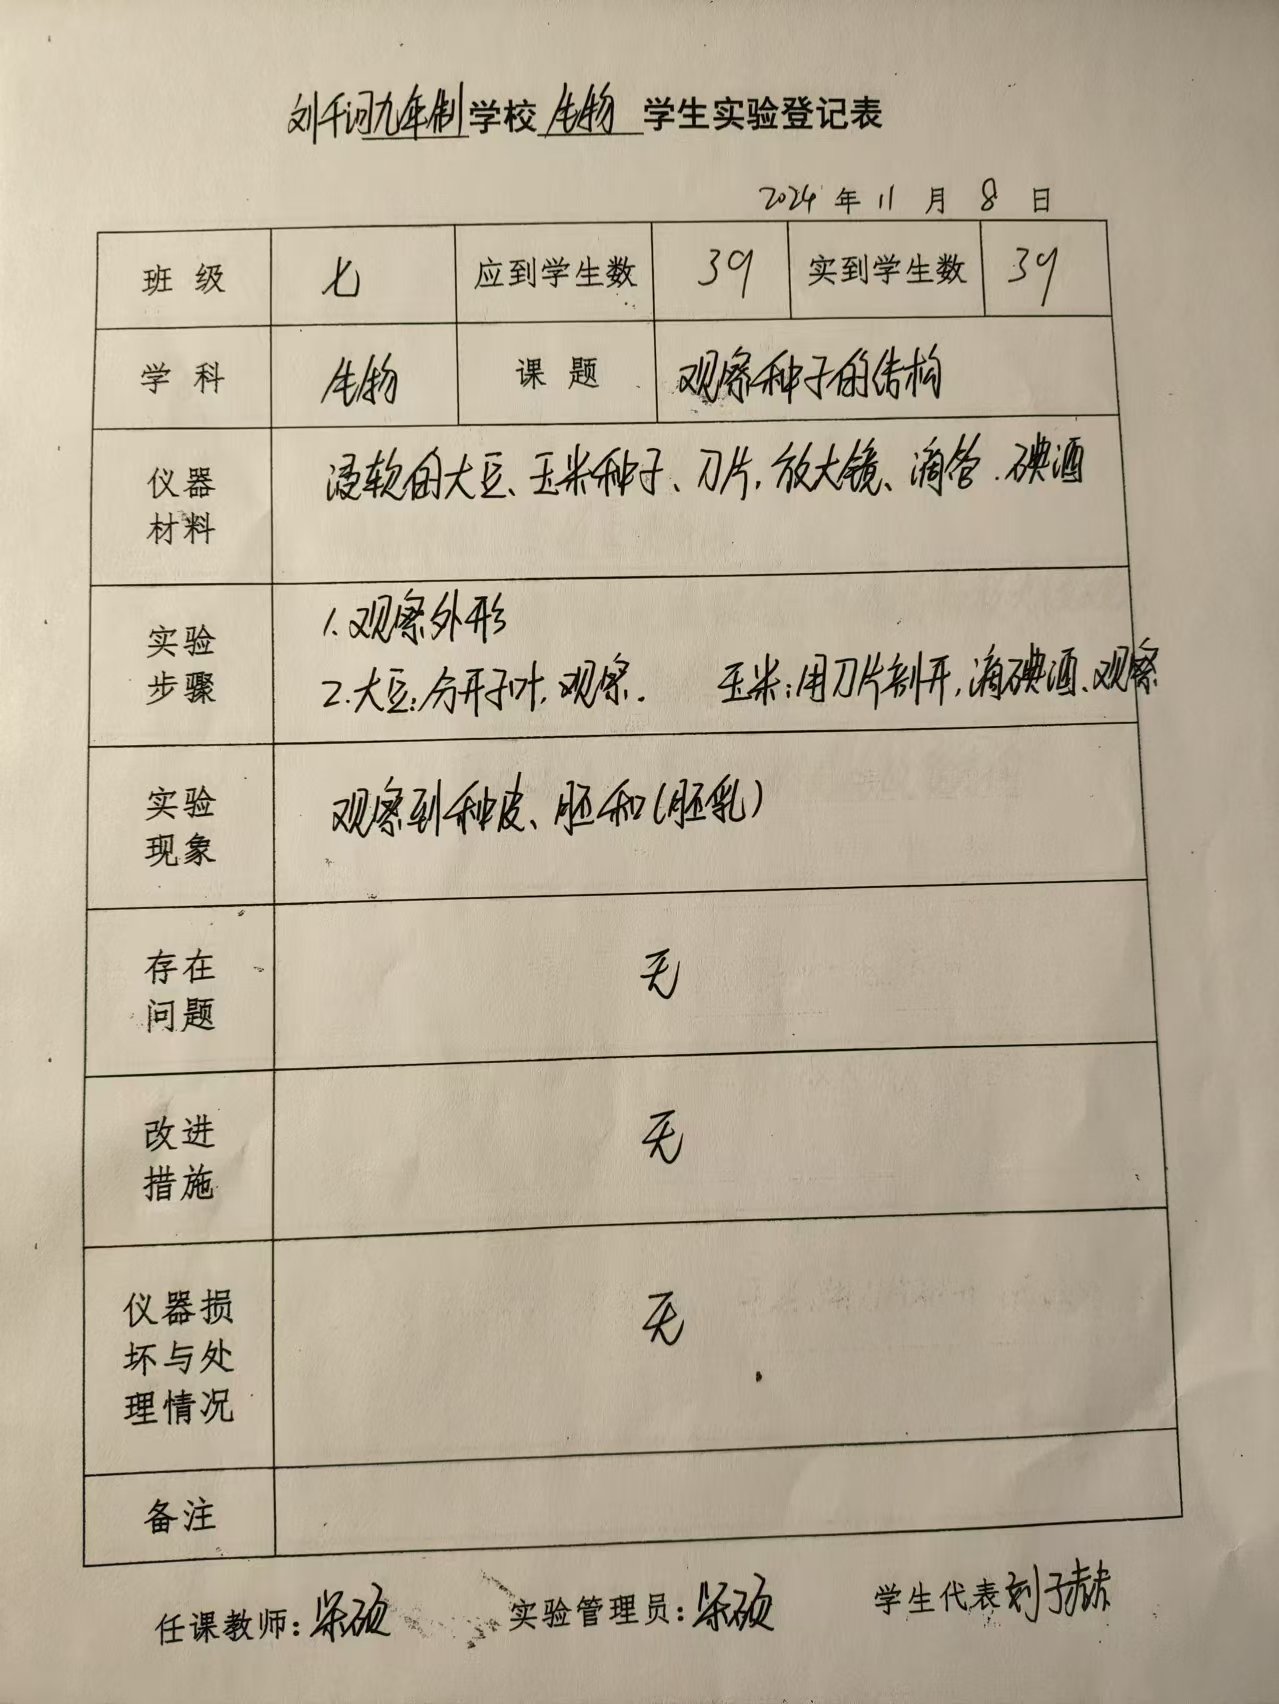 刘千河九年制学校 生物 学生实验登记表
2024 年 11 月 8 日
班级 七 应到学生数 39 实到学生数 39
学科 生物 课题 观察种子的结构
仪器
材料
浸软的大豆、玉米种子、刀片,放大镜、滴管.碘酒
实验
步骤
1.观察外形
2.大豆:分开子叶,观察. 玉米:用刀片剖开,滴碘酒、观察
实验
现象
观察到种皮、胚和(胚乳)
存在
问题
无
改进
措施
无
仪器损
坏与处
理情况
无
备注
任课教师: 硕 实验管理员: 硕 学生代表 刘子赫